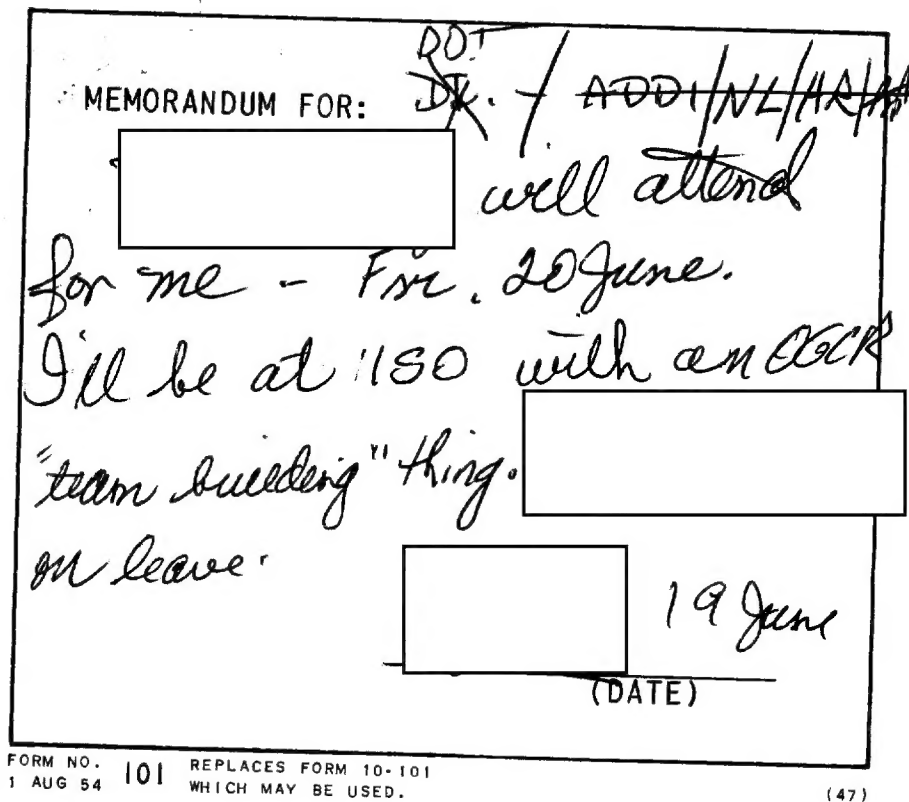 DDI
MEMORANDUM FOR: - ADDI/NL/HR/
will attend
for me - Fri. 20 June.
I'll be at ISO with an OGCR
"team building" thing.
on leave.
19 June
(DATE)
FORM NO. 101 REPLACES FORM 10-101
1 AUG 54 WHICH MAY BE USED.
(47)